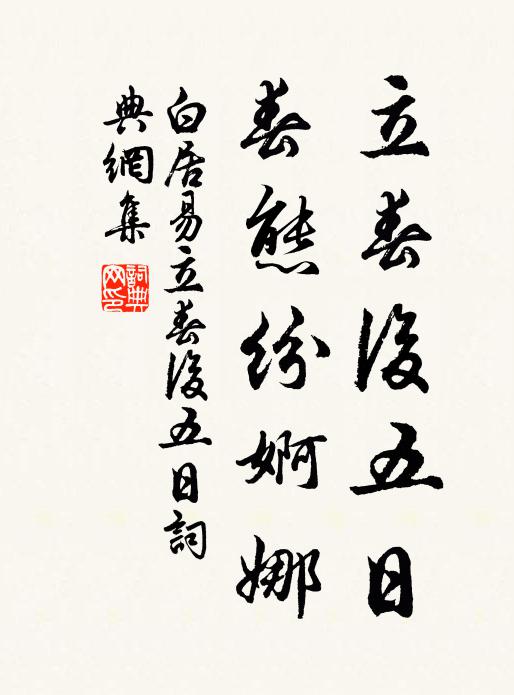 立春後五日
春態紛婀娜
白居易立春後五日詞
典網集
詞典
网印